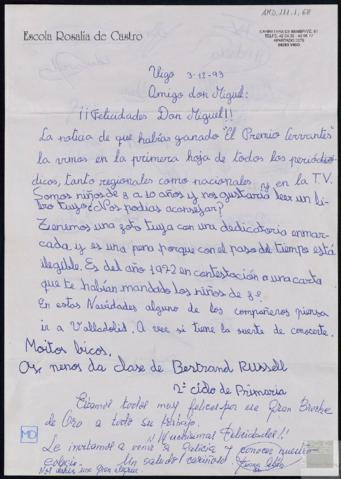 AMD, III. 1, 68
Escola Rosalía de Castro
Vigo 3-12-93
Amigo don Miguel:
¡¡Felicidades Don Miguel!!
La noticia de que habías ganado "El Premio Cervantes"
la vimos en la primera hoja de todos los periódi-
dicos, tanto regionales como nacionales y en la T.V.
Somos niños de 8 a 10 años y nos gustaría leer un li-
bro tuyo ¿Nos podías aconsejar?
Tenemos una foto tuya con una dedicatoria enmar-
cada, y es una pena porque con el paso de tiempo está
ilegible. Es del año 1972 en contestación a una carta
que te habían mandado los niños de 3º.
En estas Navidades alguno de los compañeros piensa
ir a Valladolid. A ver si tiene la suerte de conocerte.
Moitos bicos.
Os nenos da clase de Bertrand Russell
2º ciclo de Primaria
Estamos todos muy felices por ese Gran Broche
de Oro a todo su trabajo.
¡¡Muchísimas Felicidades!!
Le invitamos a venir a Galicia y conocer nuestro
colegio. Un saludo cariñoso
Nos daría una gran alegría
MD